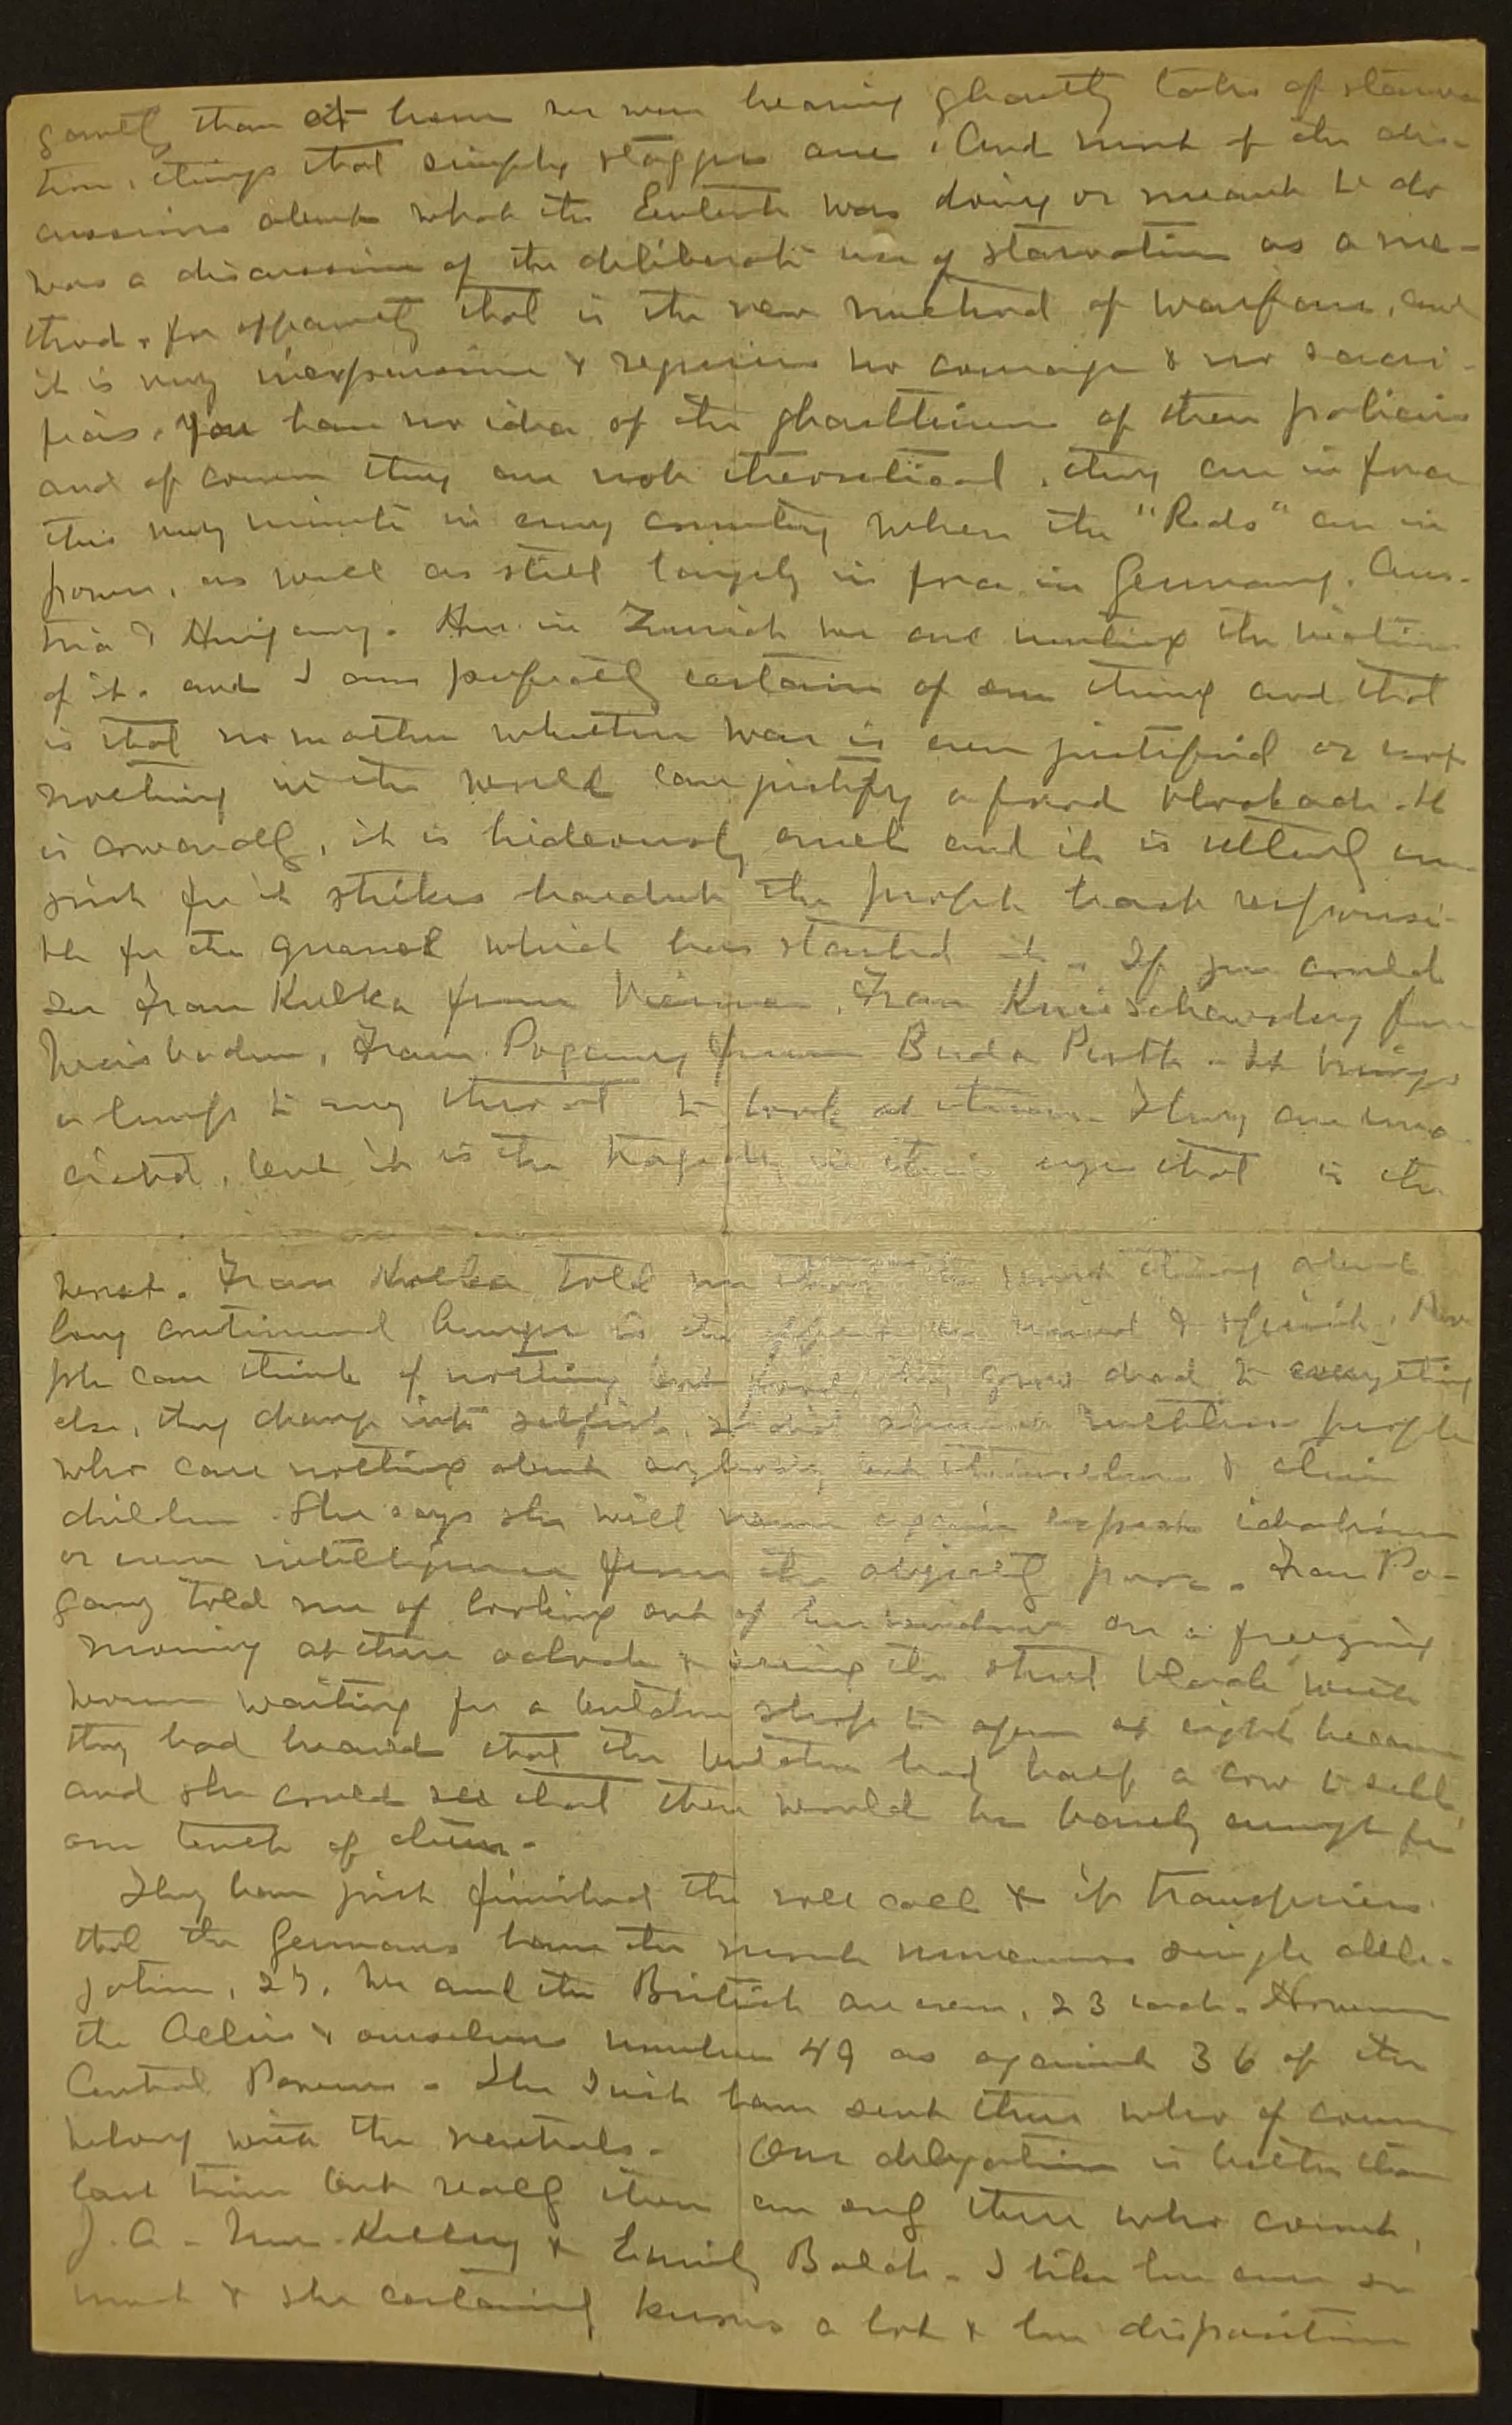 gamely than at home we were hearing ghastly tales of starva
tion, things that simply stagger one. And most of the dis-
cussions about what the Entente was doing or meant to do
was a discussion of the deliberate use of starvation as a me-
thod, for apparently that is the new method of warfare, and
it is very inexpensive & requires no courage & no sacri-
fices. You have no idea of the ghastliness of these policies
and of course they are not theoretical, they are in force
this very minute in every country where the "Reds" are in
power, as well as still largely in force in Germany, Aus-
tria & Hungary. Here in Zurich we are meeting the victims
of it. and I am perfectly certain of one thing and that
is that no matter whether war is ever justified or not
nothing in the world can justify a food blockade. It
is cowardly, it is hideously cruel and it is utterly un
just for it strikes hardest the people least responsi-
ble for the quarrel which has started it. If you could
see Frau Kulka from Vienna, Frau from
Weisbaden, Frau Pogany from Buda Pesth - It brings
a lump to my throat to look at them. They are ema
ciated, but it is the tragedy in their eyes that is the
worst. Frau Kulka told me that the worst thing about
long continued hunger is the effect on mind & spirit. Peo
ple can think of nothing but food, they grow dead to everything
else, they change into selfish, ruthless people
who care nothing about anybody but themselves & their
children. She says she will never again expect idealism
or even intelligence from the abjectly poor. Frau Po-
gany told me of looking out of her window on a freezing
morning at three oclock & seeing the street black with
women waiting for a butcher shop to open at eight because
they had heard that the butcher had half a cow to sell,
and she could see that there would be barely enough for
one tenth of them.
They have just finished the roll call & it transpires
that the Germans have the most numerous single dele-
gation, 27. We and the British are even, 23 each. However
the Allies & ourselves number 49 as against 36 of the
Central Powers. The Irish have sent three who of course
belong with the neutrals. Our delegation is better than
last time but really there are only three who count,
J.A. - Mrs. Kelley & Emily Balch. I like her ever so
much & she certainly knows a lot & her disposition